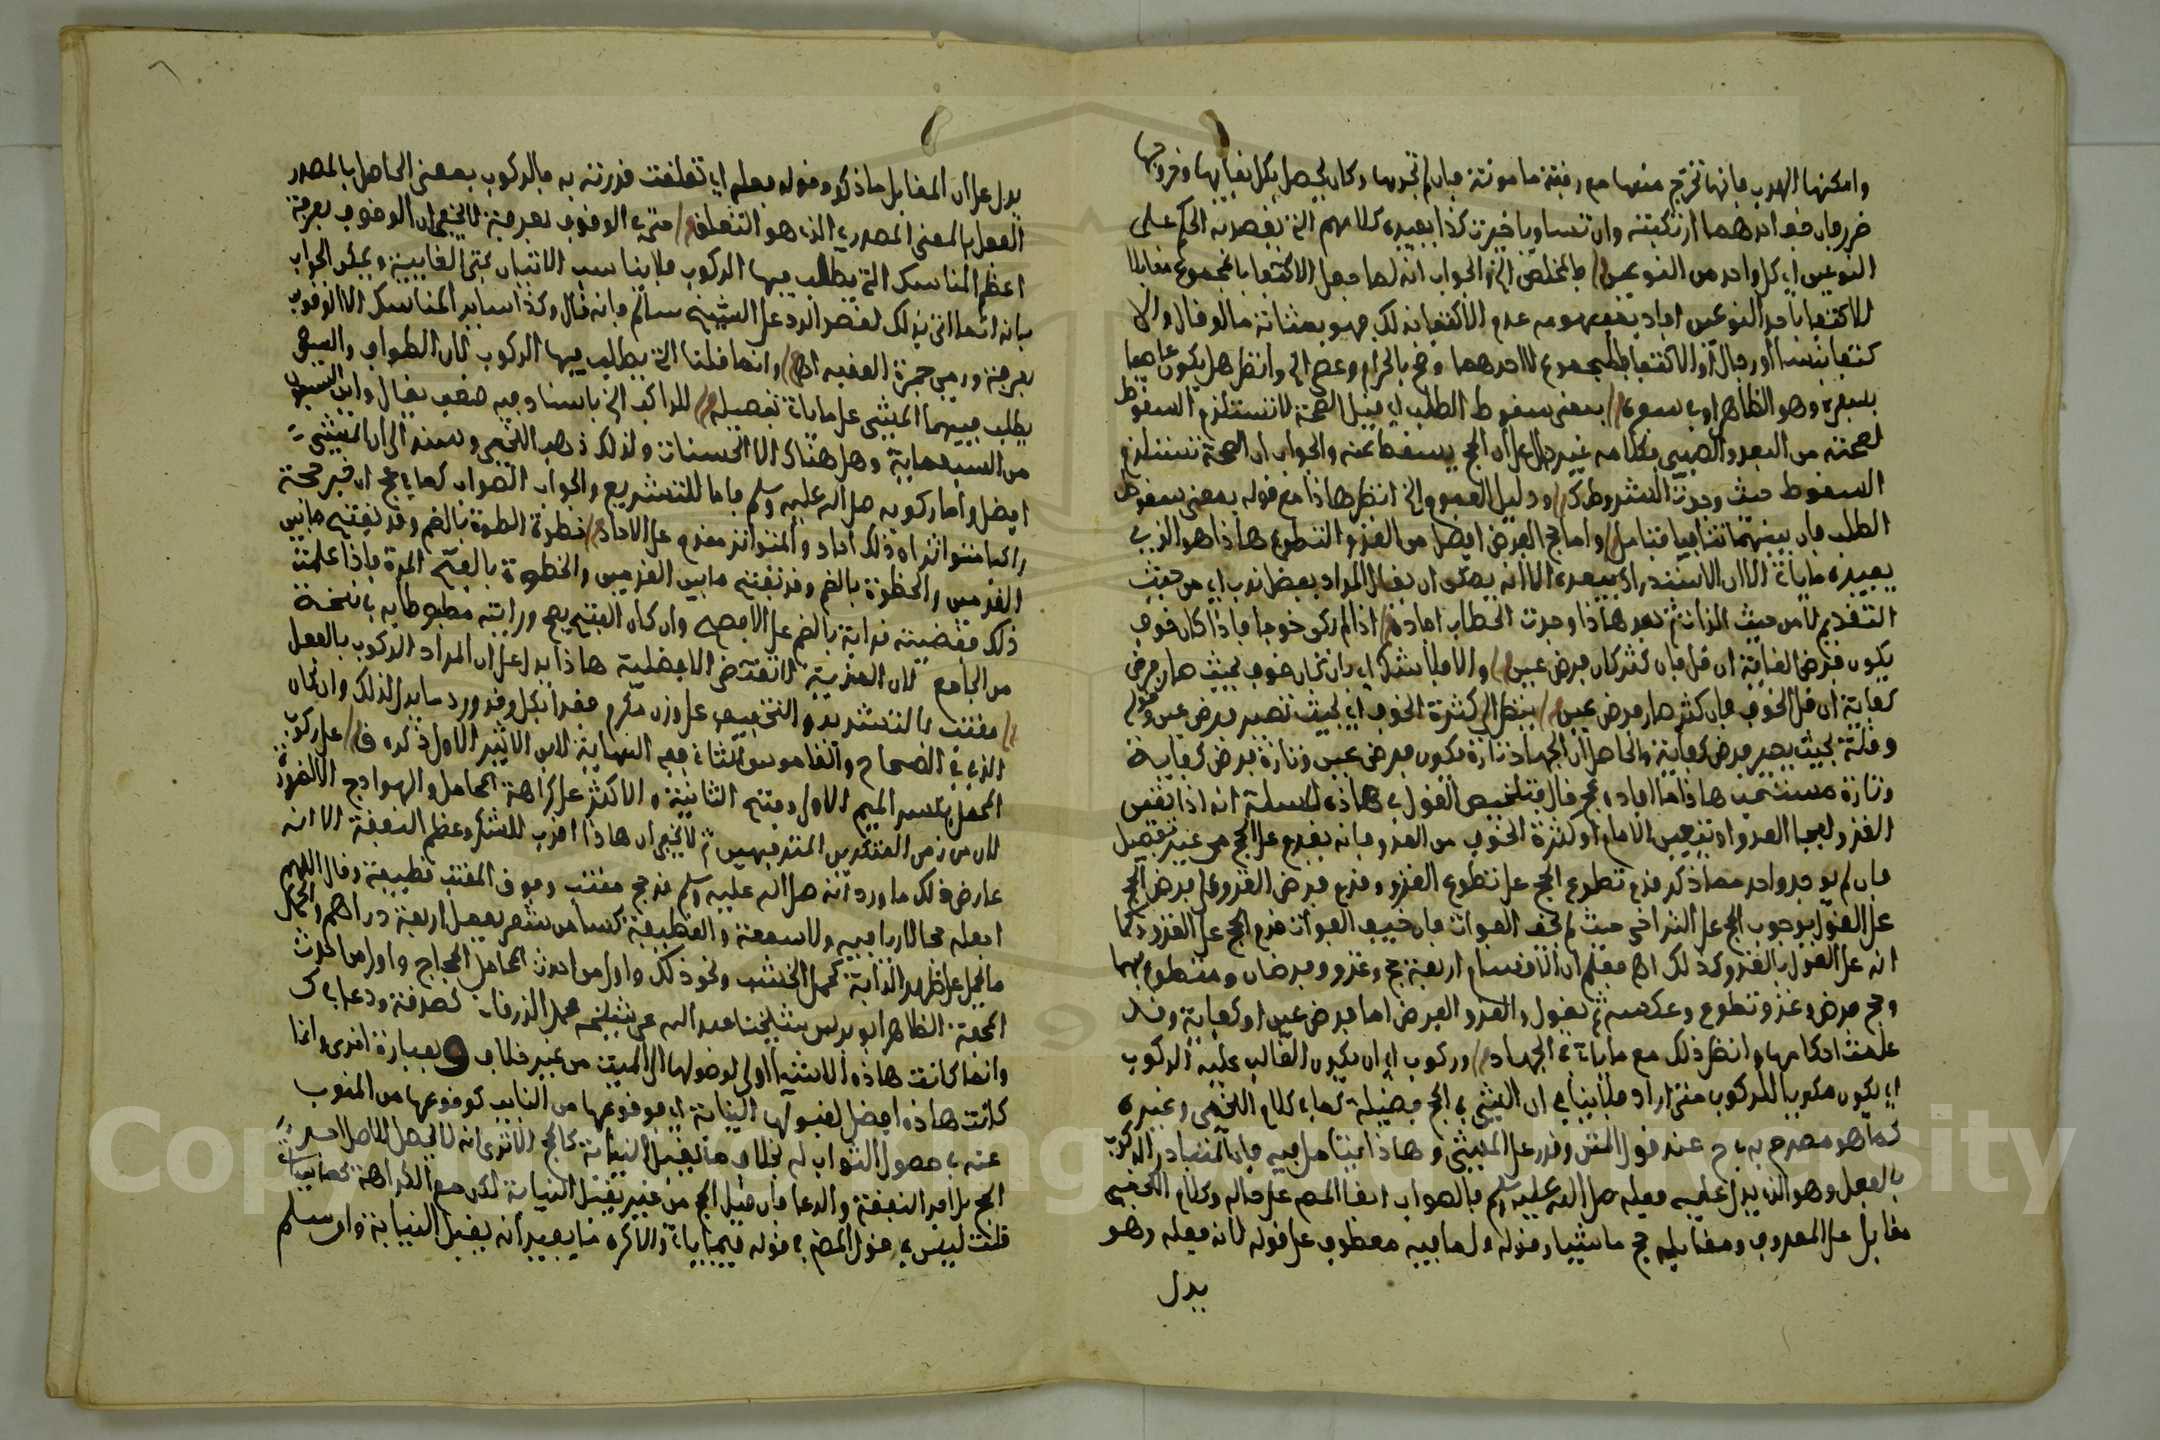 وامكنها الهرب فانها تخرج منها مع رفقة مامونة فان لم تجدها وكان يحصل بكل بقايها وخروجها
ضرر فان خف احدهما ارتكبته وان تساويا خيرت كذا يفيده كلامهم الخ بقصرته الحكم على
النوعين اي كل واحد من النوعين فالمخلص الخ والجواب انه لما جعل الاكتفا بالمجموع مقابلا
للاكتفا باحد النوعين افاد بمفهومه عدم الاكتفا بذلك فهو بمثابة ما لو قال والا
كتفا بنسا او رجال او الاكتفا بالمجموع لا احدهما وصح بالحرام وعصى الخ وانظر هل يكون عاصيا
بسفره وهو الظاهر او بسعيه بمعنى سقوط الطلب اي قيل الصحة لا تستلزم السقوط
لصحته من العبد والصبي فكلامه غير دال على ان الحج يسقط عنه والجواب ان الصحة تستلزم
السقوط حيث وجدت الشروط ودليل العموم الخ انظر هاذا مع قوله بمعنى سقوط
الطلب فان بينهما تنافيا فتامل واما حج الفرض افضل من الغزو التطوع هاذا هو الذي
يفيده ما ياتي الا ان الاستدراك يبعده الا انه يمكن ان يقال المراد بفضل ندب اي من حيث
التقديم لا من حيث الذات ثم بعد هاذا وجدت الحطاب افاده اذا لم يكن خوفا فاذا كان خوف
يكون فرض الغاية ان قل فان كثر كان فرض عين والا فلا يشكل اي وان كان خوف بحيث صار فرض
كفاية ان قل الخوف فان كثر صار فرض عين ينظر الى كثرة الخوف اي بحيث تصير فرض عين
وقلة بحيث يصير فرض كفاية والحاصل ان الجهاد تارة يكون فرض عين وتارة فرض كفاية
وتارة مستحب هاذا ما افاده عج قال فتلخيص القول في هاذه المسئلة انه اذا تعين
الغزو لفجا العدو او تعيين الامام او كثرة الخوف من العدو فانه يقدم على الحج من غير تفصيل
فان لم يوجد واحد مما ذكر قدم تطوع الحج على تطوع الغزو وقدم فرض الغزو على فرض الحج
على القول بوجوب الحج على التراخي حيث لم يخف الفوات فان خيف الفوات قدم الحج على الغزو كما
انه على القول بالفور كذلك اه فعلم ان الاقسام اربعة حج وغزو فرضان ومتطوع بهما
وحج فرض وغزو تطوع وعكسه ثم يقول والغزو الفرض اما فرض عين او كفاية وقد
علمت احكامها وانظر ذلك مع ما ياتي في الجهاد وركوب اي ان يكون الغالب عليه الركوب
اي يكون مكويا للركوب متى اراد فلا ينافي ان المشي في الحج فضيلة كما في كلام اللخمي وغيره
كما هو مصرح به في ح عند قول المتن وقدر على المشي وهاذا يتامل فيه فان المتبادر الركوب
بالفعل وهو الذي يدل عليه فعله صلى الله عليه وسلم فالصواب ابقا المص على حاله وكلام اللخمي
مقابل على المعروف ومقابله حج ماشيا وقوله ولما فيه معطوف على قوله لانه فعله وهو
يدل
يدل على ان المقابل ما ذكر وقوله بعلم اي تعلقت قدرته به فالركوب بمعنى الحاصل بالمصدر
الفعل بالمعنى المصدري الذي هو التعلق حتى في الوقوف بعرفة لا يخفى ان الوقوف بعرفة
اعظم المناسك التي يطلب فيها الركوب فلا يناسب الاتيان بحتى الغايية ويمكن الجواب
بانه انما اتى بذلك لقصد الرد على الشيخ سالم فانه قال وكذا ساير المناسك الا الوقوف
بعرفة ورمي جمرة العقبة اه وانما قلنا التي يطلب فيها الركوب لان الطواف والسعي
يطلب فيهما المشي على ما ياتي تفصيله للراكب الخ باسناد فيه ضعف يقال واين السبعون
من السبعماية وهل هناك الا الحسنات ولذلك ذهب اللخمي وسند الى ان المشي
افضل واما ركوبه صلى الله عليه وسلم فاما للتشريع والجواب الصواب كما في عج ان خبر حجته
راكبا متواتر اه وذلك احاد والمتواتر مقدم على الاحاد خطوة الخطوة بالضم وقد تفتح ما بين
القدمين والخطوة بالضم وقد تفتح ما بين القدمين والخطوة بالفتح المرة فاذا علمت
ذلك فقضيته قراءته بالضم على الافصح وان كان الفتح يصح ورايته مضبوطا به في نسخة
من الجامع لان المزية لا تقتضي الافضلية هاذا يدل على ان المراد الركوب بالفعل
مقتب بالتشديد والتخفيف على وزن مكرم فقد ابكل وقد ورد ما يدل لذلك وان كان
الذي في الصحاح والقاموس الثاني ففي النهاية لابن الاثير الاول ذكره ق على ركوب
المحمل بكسر الميم الاولى وفتح الثانية والاكثر على كراهة المحامل والهوادج الا لضرورة
لان من زي المتكبرين المترفهين ثم لا يخفى ان هاذا اقرب للشكر وعظم النفقة الا انه
عارض ذلك ما ورد انه صلى الله عليه وسلم قد حج مقتب وفوق القتب قطيفة وقال اللهم
اجعله حجا لا ريا فيه ولا سمعة والقطيفة كسا من شعر يعمل اربعة دراهم والمحمل
ما يجعل على ظهر الدابة كحمل الخشب ونحو ذلك واول من احدث المحامل الحجاج واول من احدث
المحفة الظاهر ابو يزيد شيخنا عبد الله عن شيخه محمد الزرقاني كصدقة ودعا
وانما كانت هاذه الاشيا اولى لوصولها الى الميت من غير خلاف وبعبارة اخرى وانما
كانت هاذه افضل لقبولها النيابة اي فوقوعها من النايب كوقوعها من المنوب
عنه في حصول الثواب له بخلاف ما لا يقبل النيابة كالحج الا ترى انه لا يحصل للحاصل
الحج بل اجر النفقة والدعا فان قيل الحج من غير يقبل النيابة لكن مع الكراهة كما
قلت ليس في قول المص في قوله فيما ياتي والا كره ما يفيد انه يقبل النيابة وان سلم